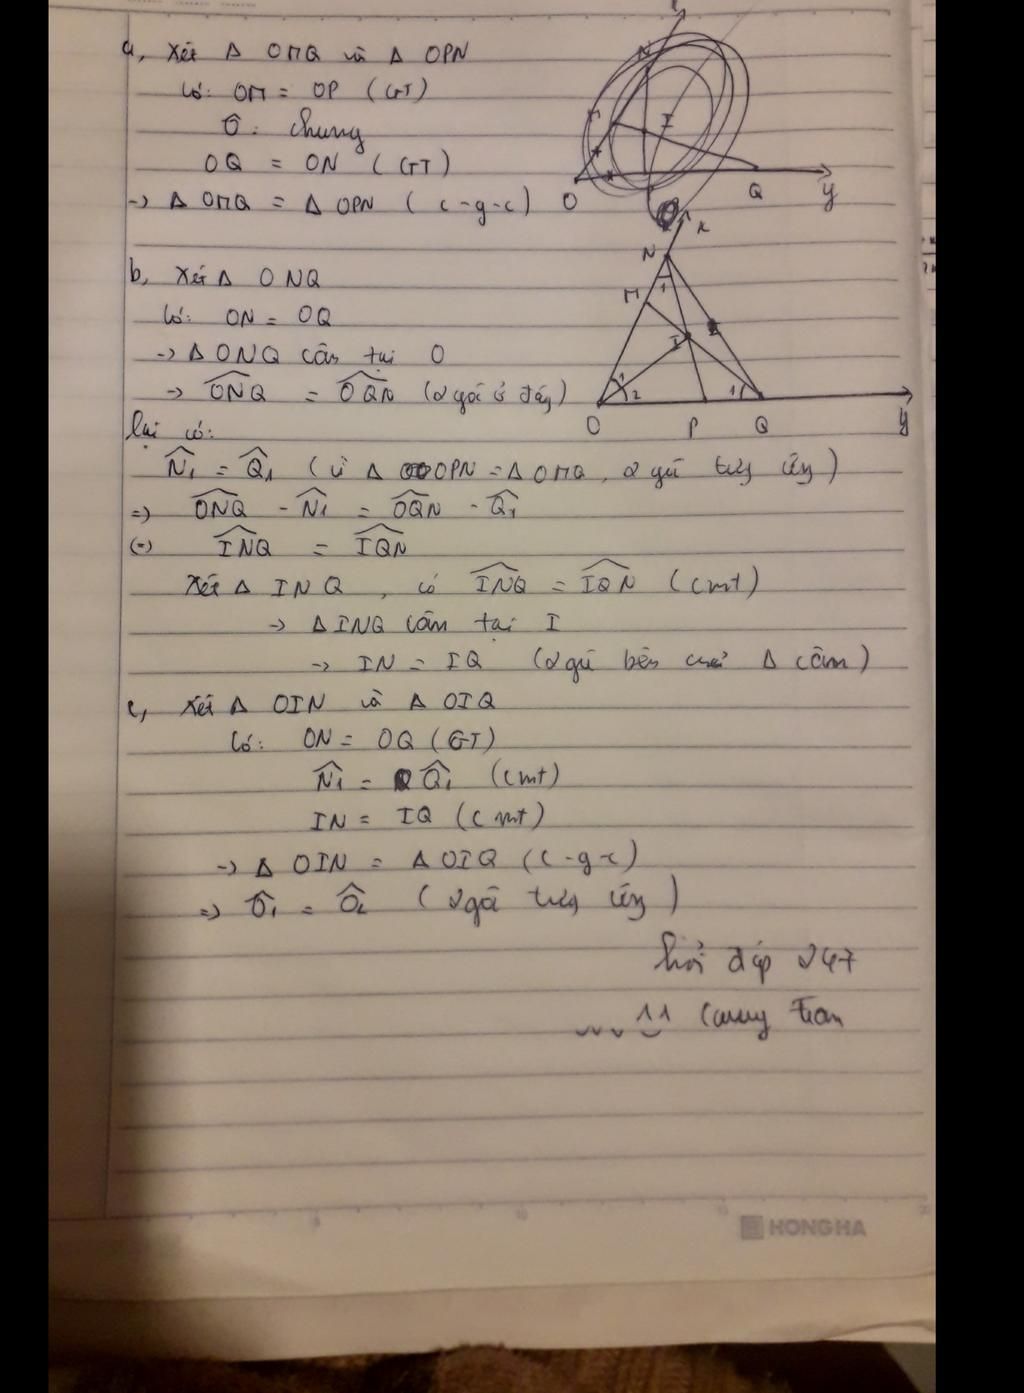 a, Xét Δ OMQ và Δ OPN
Có: OM = OP (GT)
Ô: chung
OQ = ON (GT)
-> Δ OMQ = Δ OPN (c-g-c)
N
M
I
O
Q
y
b, Xét Δ ONQ
Có: ON = OQ
-> Δ ONQ cân tại O
-> ONQ^ = OQN^ (2 góc ở đáy)
N
x
M
1
I
1
2
1
O
P
Q
y
lại có:
N̂1 = Q̂1 (vì Δ OPN = Δ OMQ, 2 góc tứng ứng)
=> ONQ^ - N̂1 = OQN^ - Q̂1
(=) INQ^ = IQN^
Xét Δ INQ, có INQ^ = IQN^ (cmt)
-> Δ INQ cân tại I
-> IN = IQ (2 gó bên của Δ cân)
c, Xét Δ OIN và Δ OIQ
Có: ON = OQ (GT)
N̂1 = Q̂1 (cmt)
IN = IQ (cmt)
-> Δ OIN = Δ OIQ (c-g-c)
=> Ô1 = Ô2 (2 góc tứng ứng)
hỏi đáp 247
11 Cuong tran
HONG HA